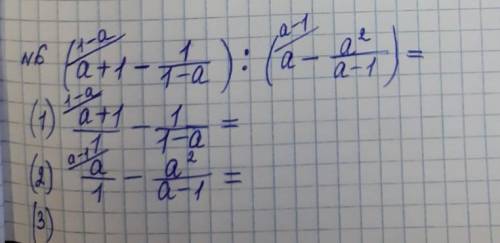 №6 (a+1 (1-a) - 1/(1-a)) : (a (a-1) - a²/(a-1)) =
(1) (a+1)/1 (1-a) - 1/(1-a) =
(2) a/1 (a-1) - a²/(a-1) =
(3)